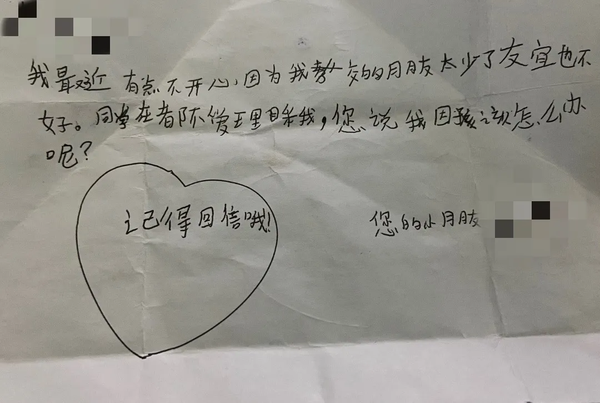 我最近有点不开心,因为我交的月朋友太少了友宜也不
好。同学在者阝不爱王里目采我,您说我因该怎么办
呢?
讠己得回信哦!
您的小月朋友